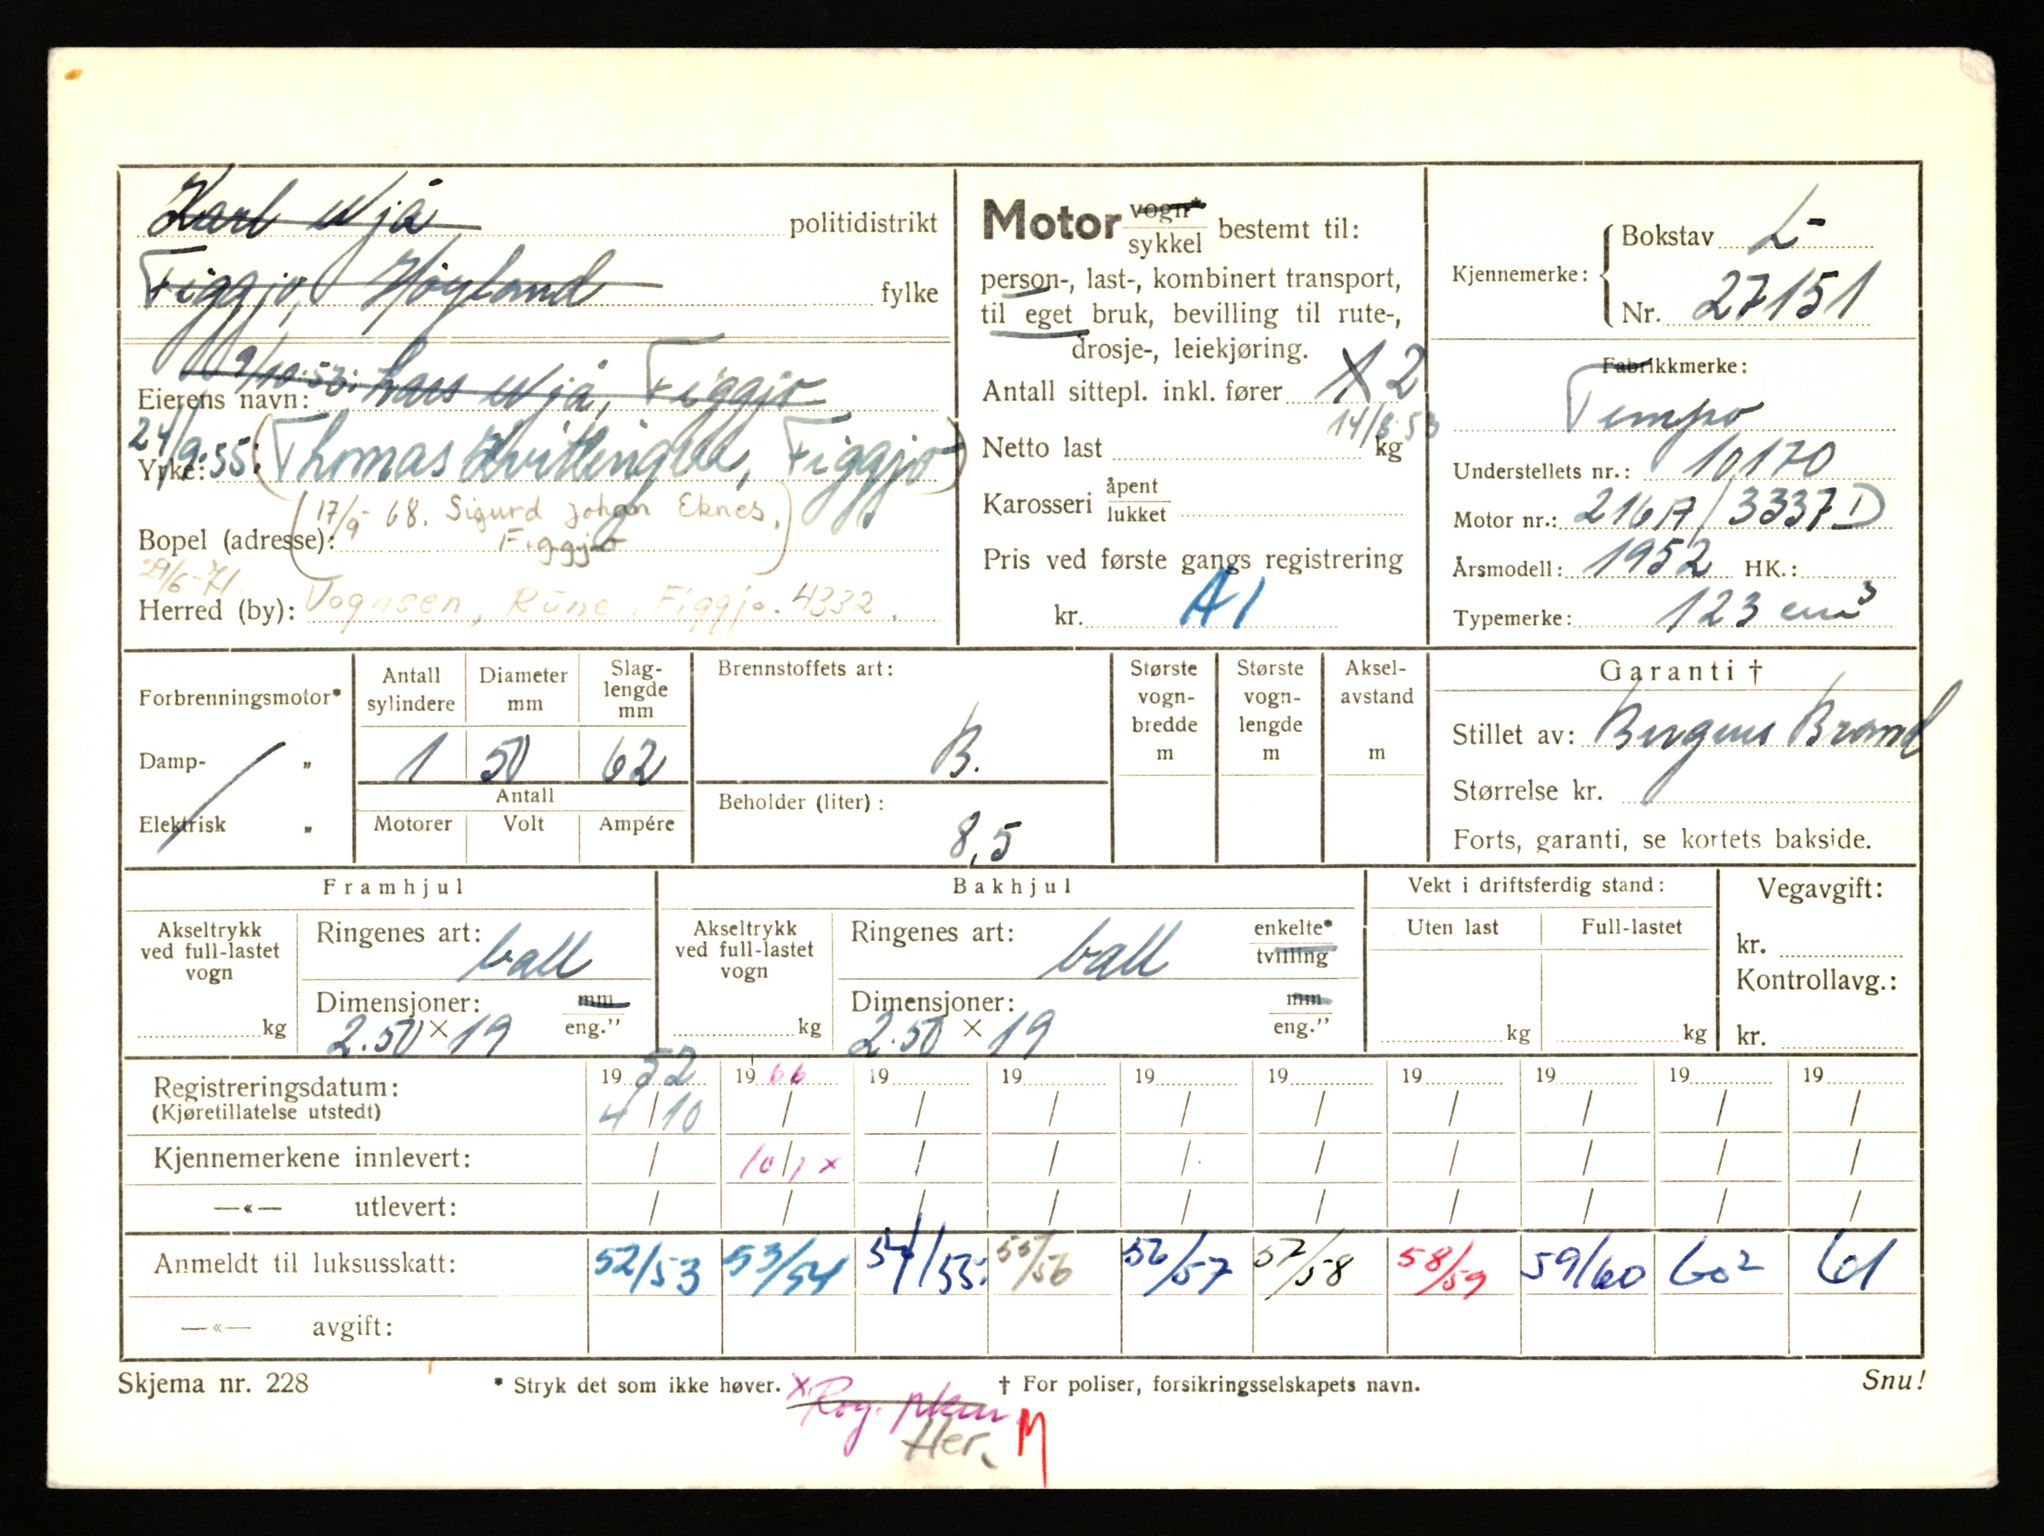 Karl Njå politidistrikt
Figgjo, Høyland fylke
9/10.53. Lars Njå, Figgjo
Eierens navn:
24/9.55. (Thomas Kvitlingbu, Figgjo)
Yrke:
(17/9-68. Sigurd Johan Eknes,
Figgjo)
Bopel (adresse):
29/6-71.
Herred (by): Vognsen, Rune. Figgjo. 4332.
Motor vogn* sykkel bestemt til:
person-, last-, kombinert transport,
til eget bruk, bevilling til rute-,
drosje-, leiekjøring.
Antall sittepl. inkl. fører 1 2
14/8.53
Netto last kg
Karosseri åpent lukket
Pris ved første gangs registrering
kr. A1
Kjennemerke: Bokstav L-
Nr. 27151
Fabrikkmerke:
Tempo
Understellets nr.: 10170
Motor nr.: 216A/3337D
Årsmodell: 1952 HK.:
Typemerke: 123 cm3
Forbrenningsmotor*
Damp- „
Elektrisk „
Antall sylindere 1
Diameter mm 50
Slag-lengde mm 62
Antall
Motorer Volt Ampére
Brennstoffets art:
B.
Beholder (liter):
8,5
Største vogn-bredde m
Største vogn-lengde m
Aksel-avstand m
Garanti †
Stillet av: Bergens Brand
Størrelse kr.
Forts, garanti, se kortets bakside.
Framhjul
Akseltrykk ved full-lastet vogn kg
Ringenes art: ball
Dimensjoner: mm eng."
2.50 × 19
Bakhjul
Akseltrykk ved full-lastet vogn kg
Ringenes art: ball enkelte* tvilling
Dimensjoner: mm eng."
2.50 × 19
Vekt i driftsferdig stand:
Uten last Full-lastet
kg kg
Vegavgift:
kr.
Kontrollavg.:
kr.
19 52 19 66 19 19 19 19 19 19 19 19
Registreringsdatum:
(Kjøretillatelse utstedt) 4/10 / / / / / / / / /
Kjennemerkene innlevert: / 10/1 x / / / / / / / /
—«— utlevert: / / / / / / / / / /
Anmeldt til luksusskatt: 52/53 53/54 54/55. 55/56 56/57 57/58 58/59 59/60 60² 61
—«— avgift:
Skjema nr. 228 * Stryk det som ikke høver. † For poliser, forsikringsselskapets navn. Snu!
x Rog.
Her. M